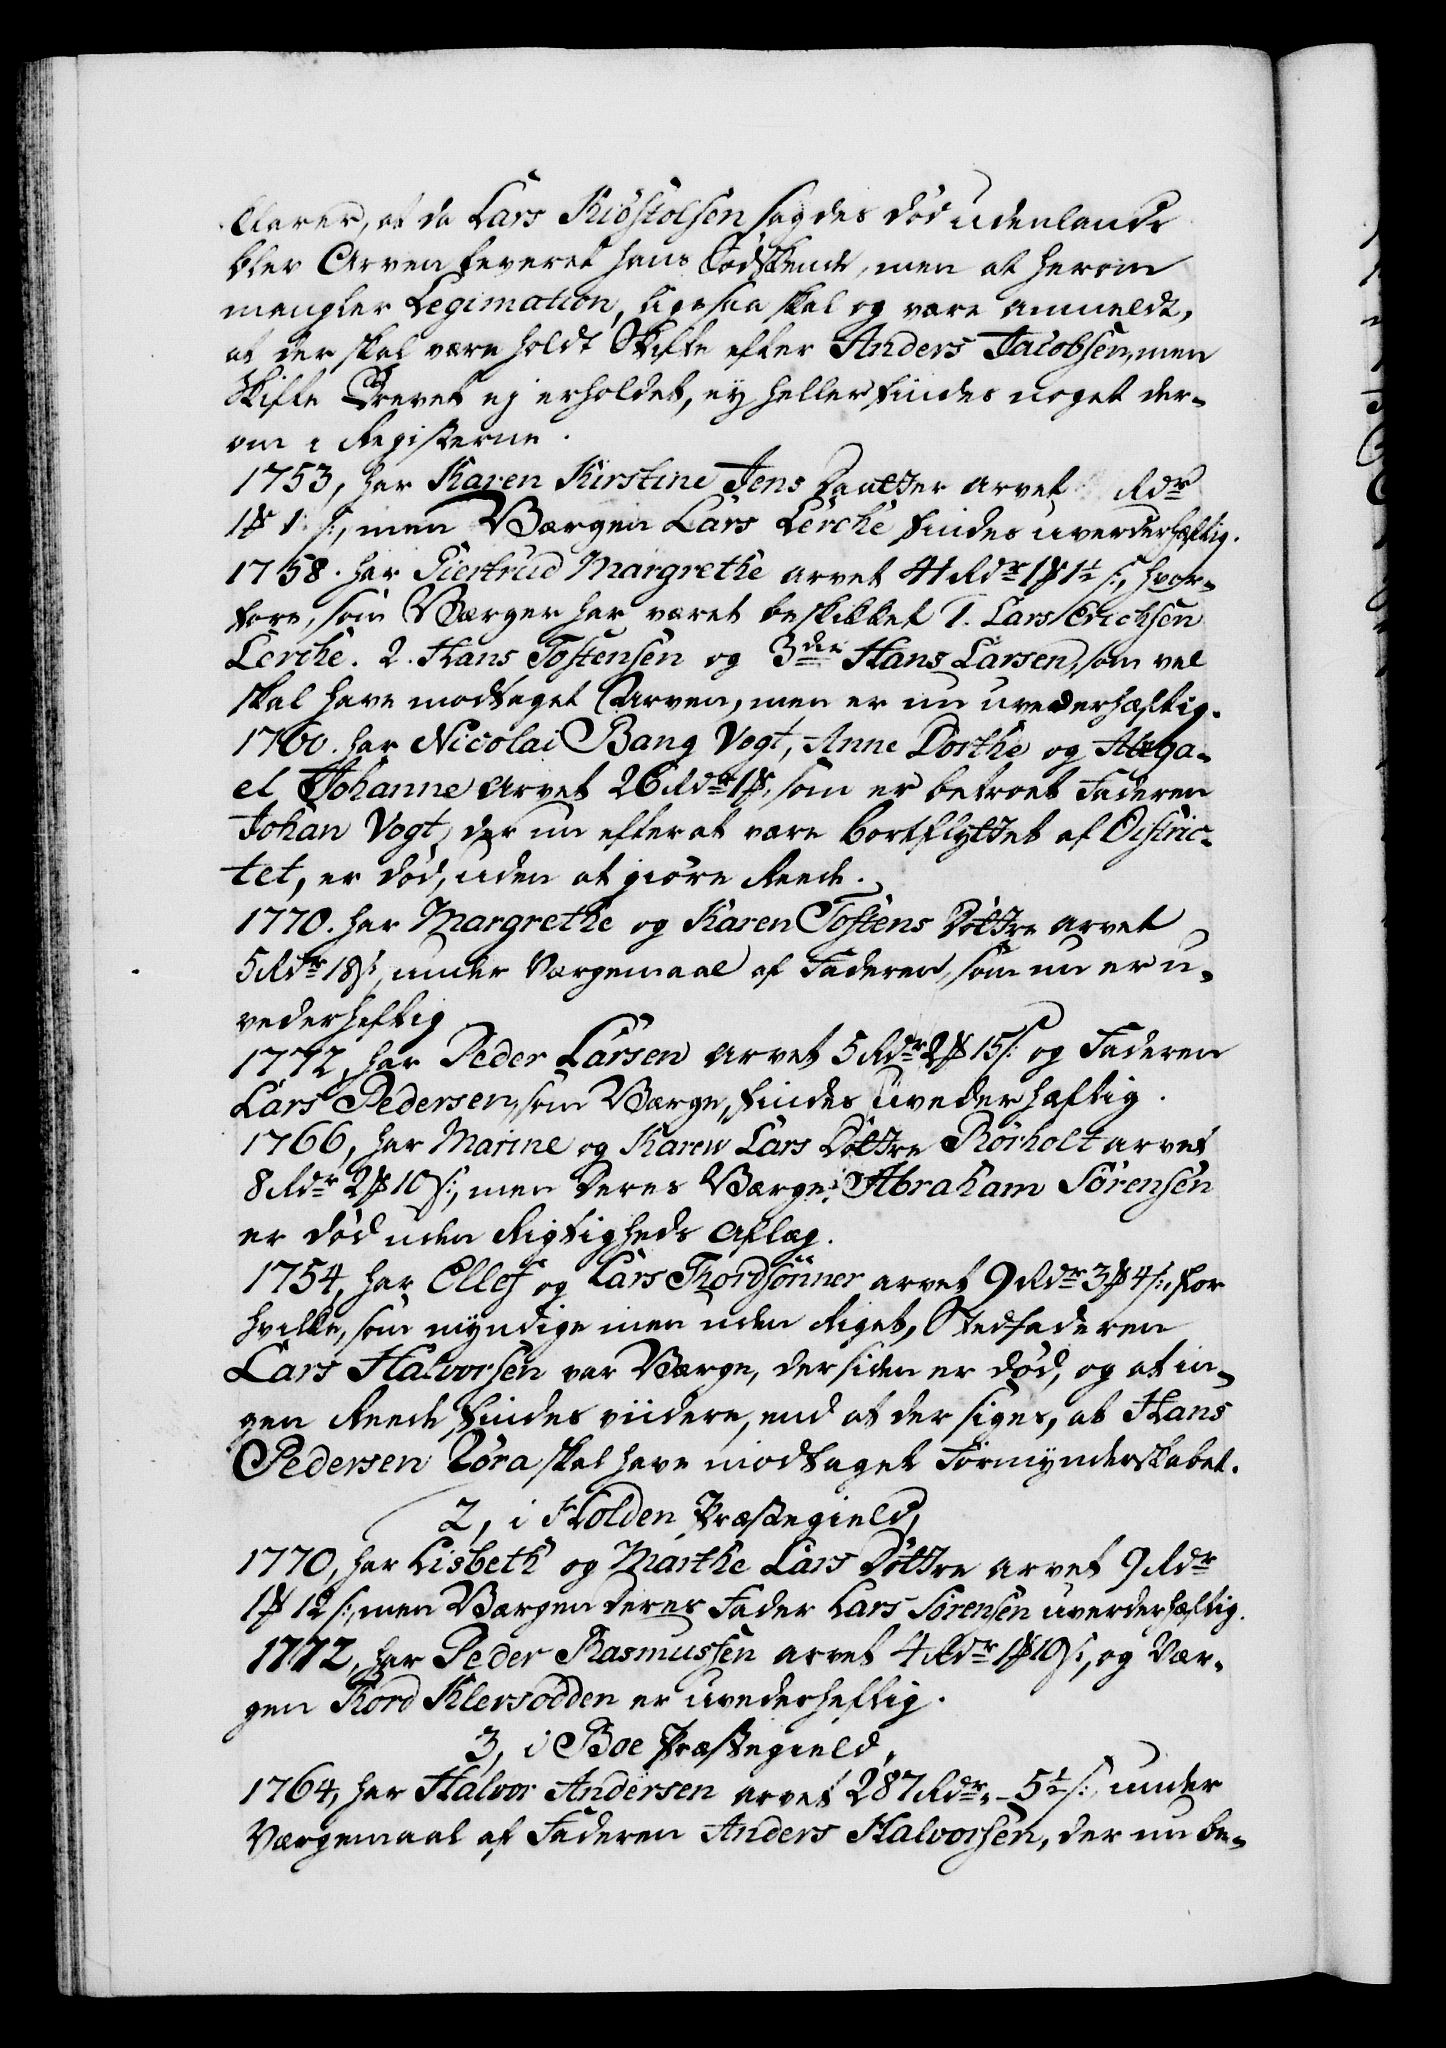 klarer, at da Lars Kiöstolsen sagdes död udenlands
blev Arven leveret hans Södskende, men at herom
mangler Legimation, ligesaa skal og være anmeldt,
at der skal være holdt Skifte efter Anders Jacobsen, men
Skifte Brevet ej erholdet, ey heller findes noget der-
om i Registerne.
1753, har Karen Kirstine Jens Daatter arvet Rdr
1 ß, men Værgen Lars Lerche findes uvederhæftig.
1758. har Giertrud Margrethe arvet 41 Rdr 1 1½ ß, hvor-
fore, som Værger har været beskikket 1. Lars Erichsen
Lerche. 2. Hans Tostensen og 3die Hans Larsen, som vel
skal have modtaget Arven, men er nu uvederhæftig.
1760. har Nicolai Bang Vogt, Anne Dorthe og Abiga-
el Johanne arvet 26 Rdr 1 , som er betroet Faderen
Johan Vogt, der nu efter at være bortflyttet af Distric-
tet, er död, uden at giöre Reede.
1770. har Margrethe og Karen Tostens Döttre arvet
5 Rdr 18 ß, under Værgemaal af Faderen, som nu er u-
vederheftig
1772, har Peder Larsen arvet 5 Rdr 2 15 ß og Faderen
Lars Pedersen, som Værge, findes uvederhæftig.
1766, har Marine og Karen Lars Döttre Rörholt arvet
8 Rdr 2 10 ß, men deres Værge Abraham Sörensen
er död uden Rigtigheds Aflæg.
1754, har Ellef og Lars Thordsönner arvet 9 Rdr 3 4 ß, for
hvilke, som myndige men uden Riget, Stedfaderen
Lars Halvorsen var Værge, der siden er död, og at in-
gen Reede findes viidere, end at der siges, at Hans
Pedersen Tóra skal have modtaget Formynderskabet.
2, i Holden Præstegield,
1770, har Lisbeth og Marthe Lars Döttre arvet 9 Rdr
1 12 ß, men Værgen deres Fader Lars Sörensen uvederhæftig.
1772, har Peder Rasmussen arvet 4 Rdr 1 10 ß, og Vær-
gen Thord Klevsodden er uvederheftig.
3, i Boe Præstegield,
1764, har Halvor Andersen arvet 287 Rdr - 5½ ß, under
Værgemaal af Faderen Anders Halvorsen, der nu be-